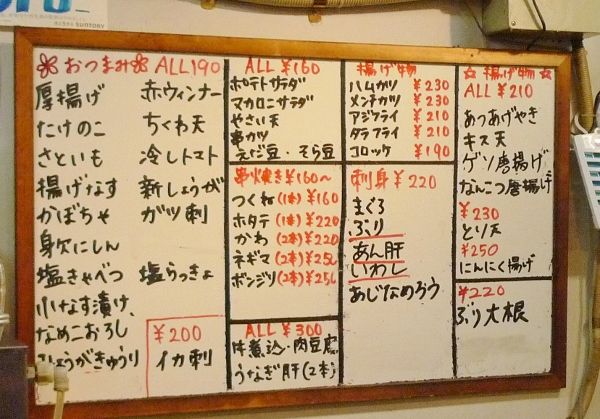 SUNTORY
おつまみ ALL190
厚揚げ
たけのこ
さといも
揚げなす
かぼちゃ
身欠にしん
塩きゃべつ
小なす漬け
なめこおろし
ひょうがきゅうり
赤ウィンナー
ちくわ天
冷しトマト
新しょうが
ガツ刺
塩らっきょ
¥200
イカ刺
ALL ¥160
ポテトサラダ
マカロニサラダ
やさい天
串カツ
えだ豆・そら豆
串焼き¥160〜
つくね(1本)¥160
ホタテ(1本)¥220
かわ(2本)¥220
ネギマ(2本)¥250
ボンジリ(2本)¥250
ALL ¥300
牛煮込・肉豆腐
うなぎ肝(2本)
揚げ物
ハムカツ ¥230
メンチカツ ¥230
アジフライ ¥210
タラフライ ¥210
コロッケ ¥190
刺身 ¥220
まぐろ
ぶり
あん肝
いわし
あじなめろう
☆ 揚げ物 ☆
ALL ¥210
あつあげやき
キス天
ゲソ唐揚げ
なんこつ唐揚げ
¥230
とり天
¥250
にんにく揚げ
¥220
ぶり大根